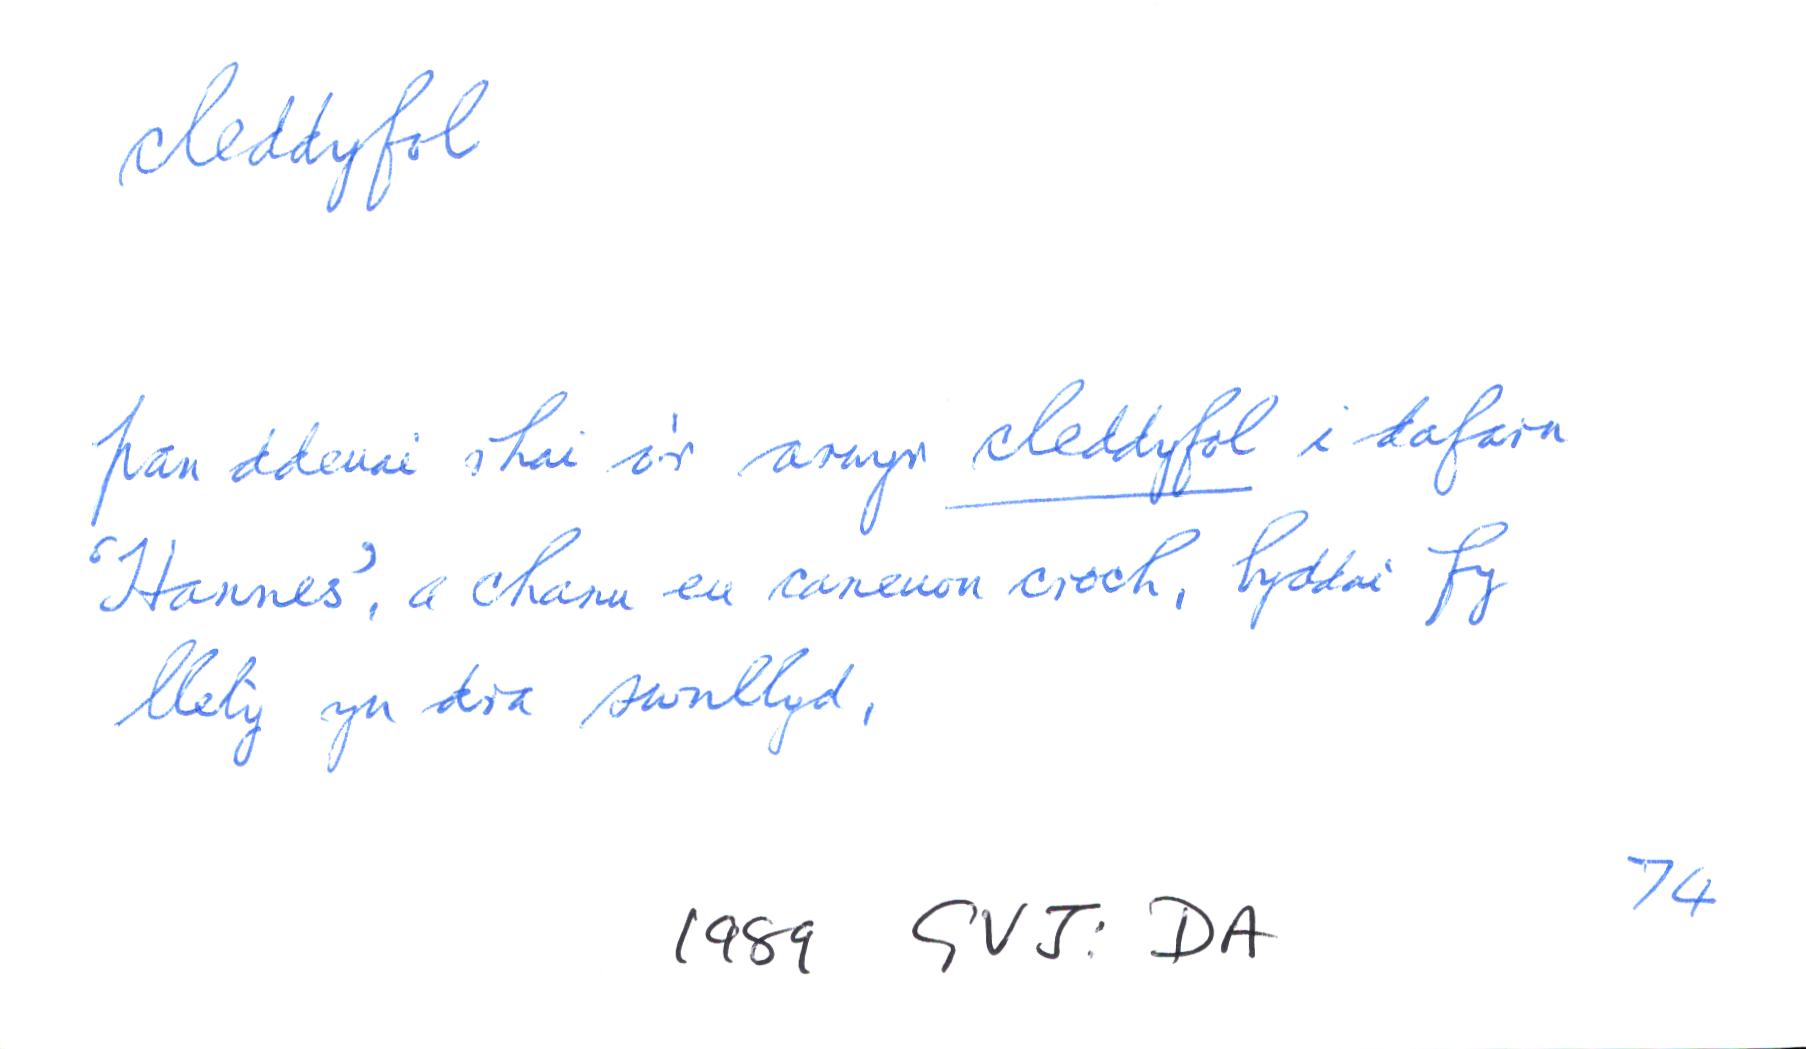 cleddyfol
pan ddeuai rhai o'r arwyr cleddyfol i dafarn
‘Hannes’, a chanu eu caneuon croch, byddai fy
llety yn dra swnllyd.
74
1989 GVJ: DA